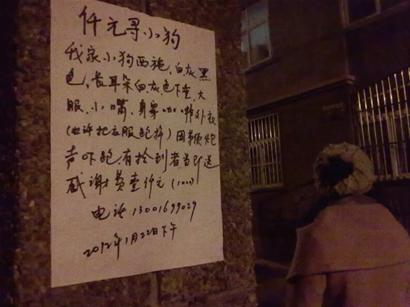 仟元寻小狗
我家小狗西施,白灰黑
色,长耳朵白灰色下垂,大
眼、小嘴,身穿咖啡外衣
(也许把衣服跑掉)因鞭炮
声吓跑,有拾到者当即送
感谢费壹仟元(1000)
电话 13001699029
2012年1月22日下午